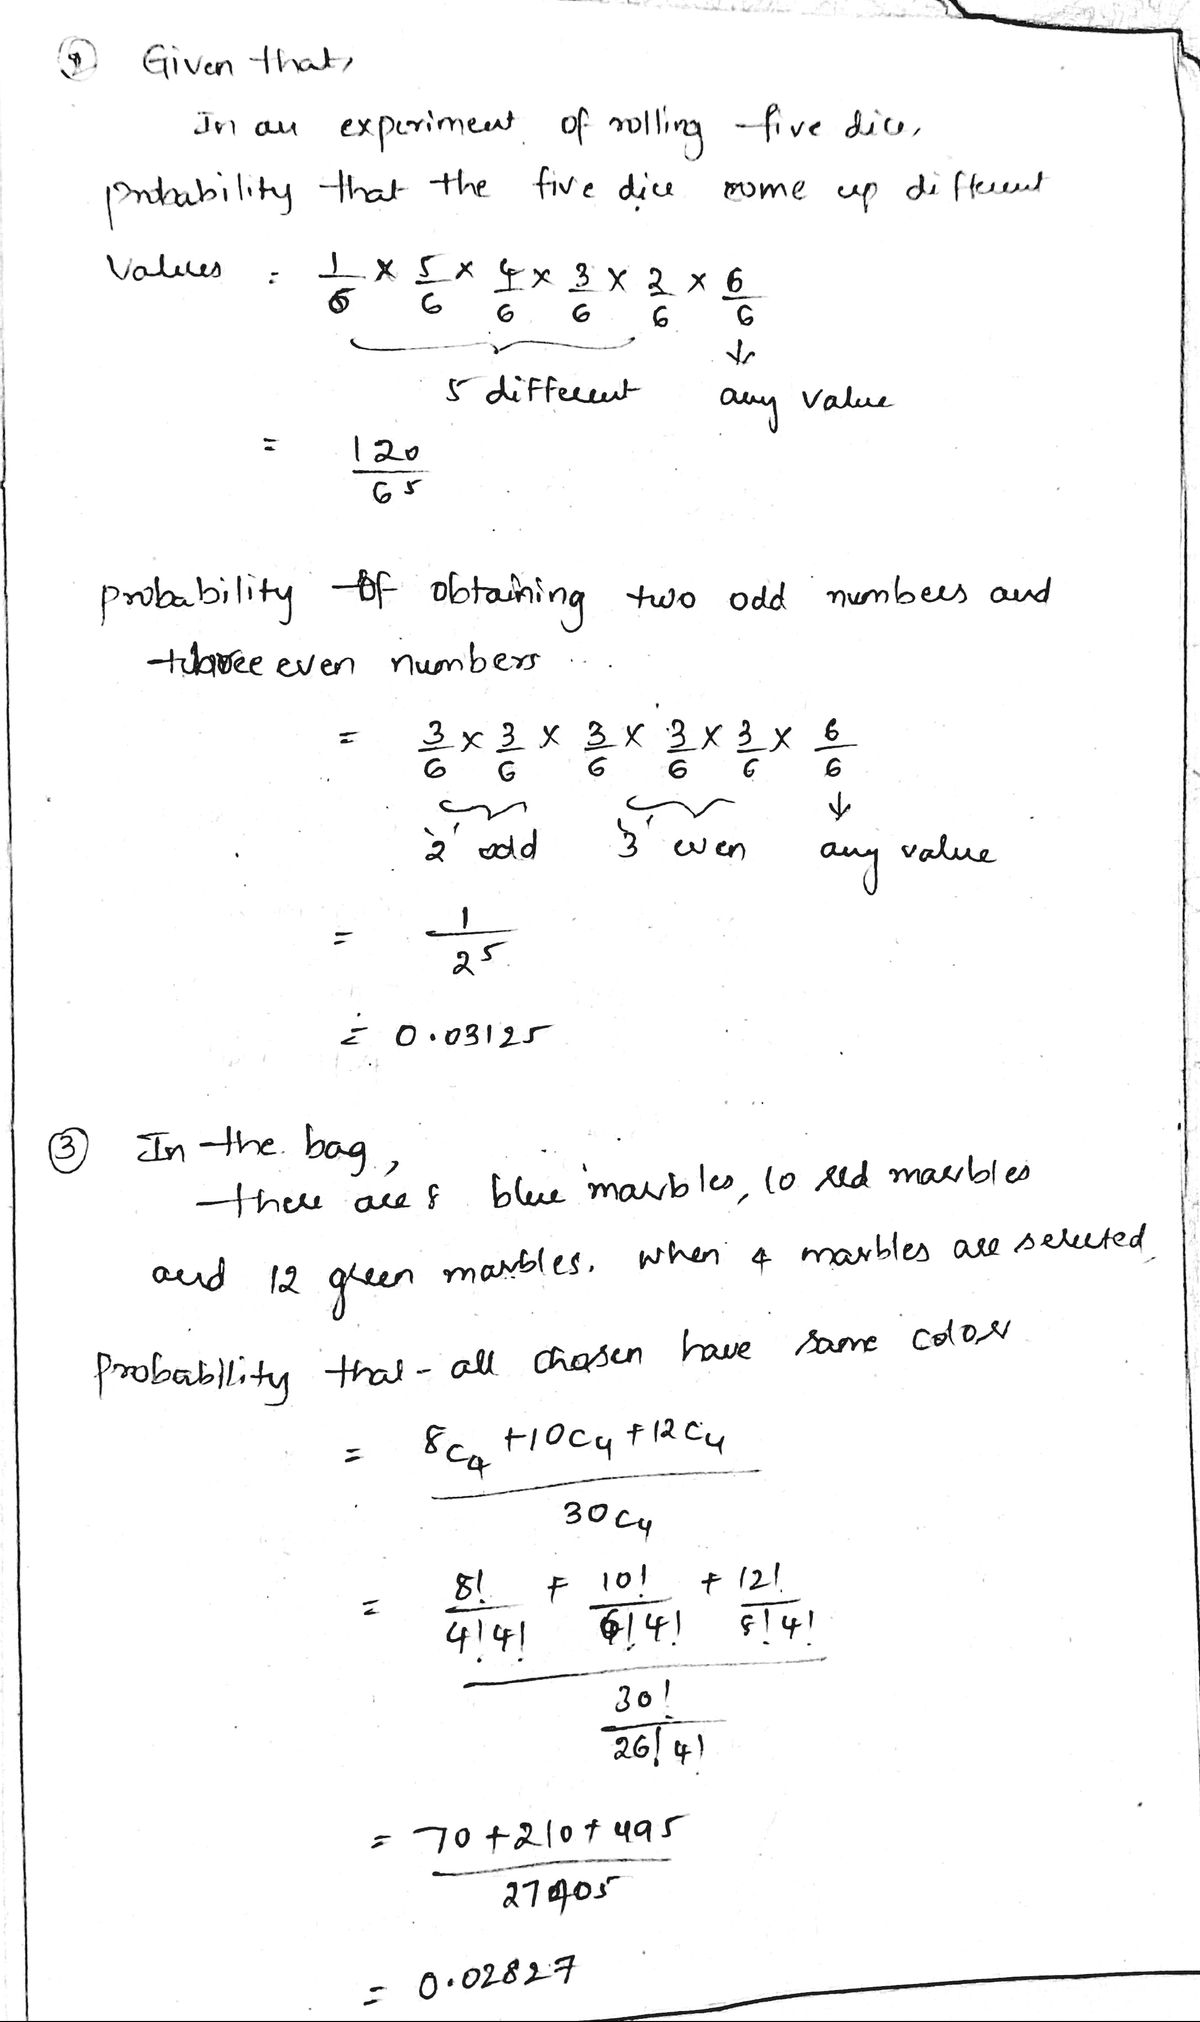 ② Given that,
In an experiment of rolling five dice,
probability that the five dice come up different
Values = 1/6 × 5/6 × 4/6 × 3/6 × 2/6 × 6/6
↓
5 different any value
= 120/6⁵
probability of obtaining two odd numbers and
three even numbers
= 3/6 × 3/6 × 3/6 × 3/6 × 3/6 × 6/6
↓
'2' odd '3' even any value
= 1/2⁵
= 0.03125
③ In the bag,
there are 8 blue marbles, 10 red marbles
and 12 green marbles. When 4 marbles are selected
Probability that all chosen have same color
= 8C4 + 10C4 + 12C4
30C4
= 8!/4!4! + 10!/6!4! + 12!/8!4!
30!/26!4!
= 70 + 210 + 495
27405
= 0.02827